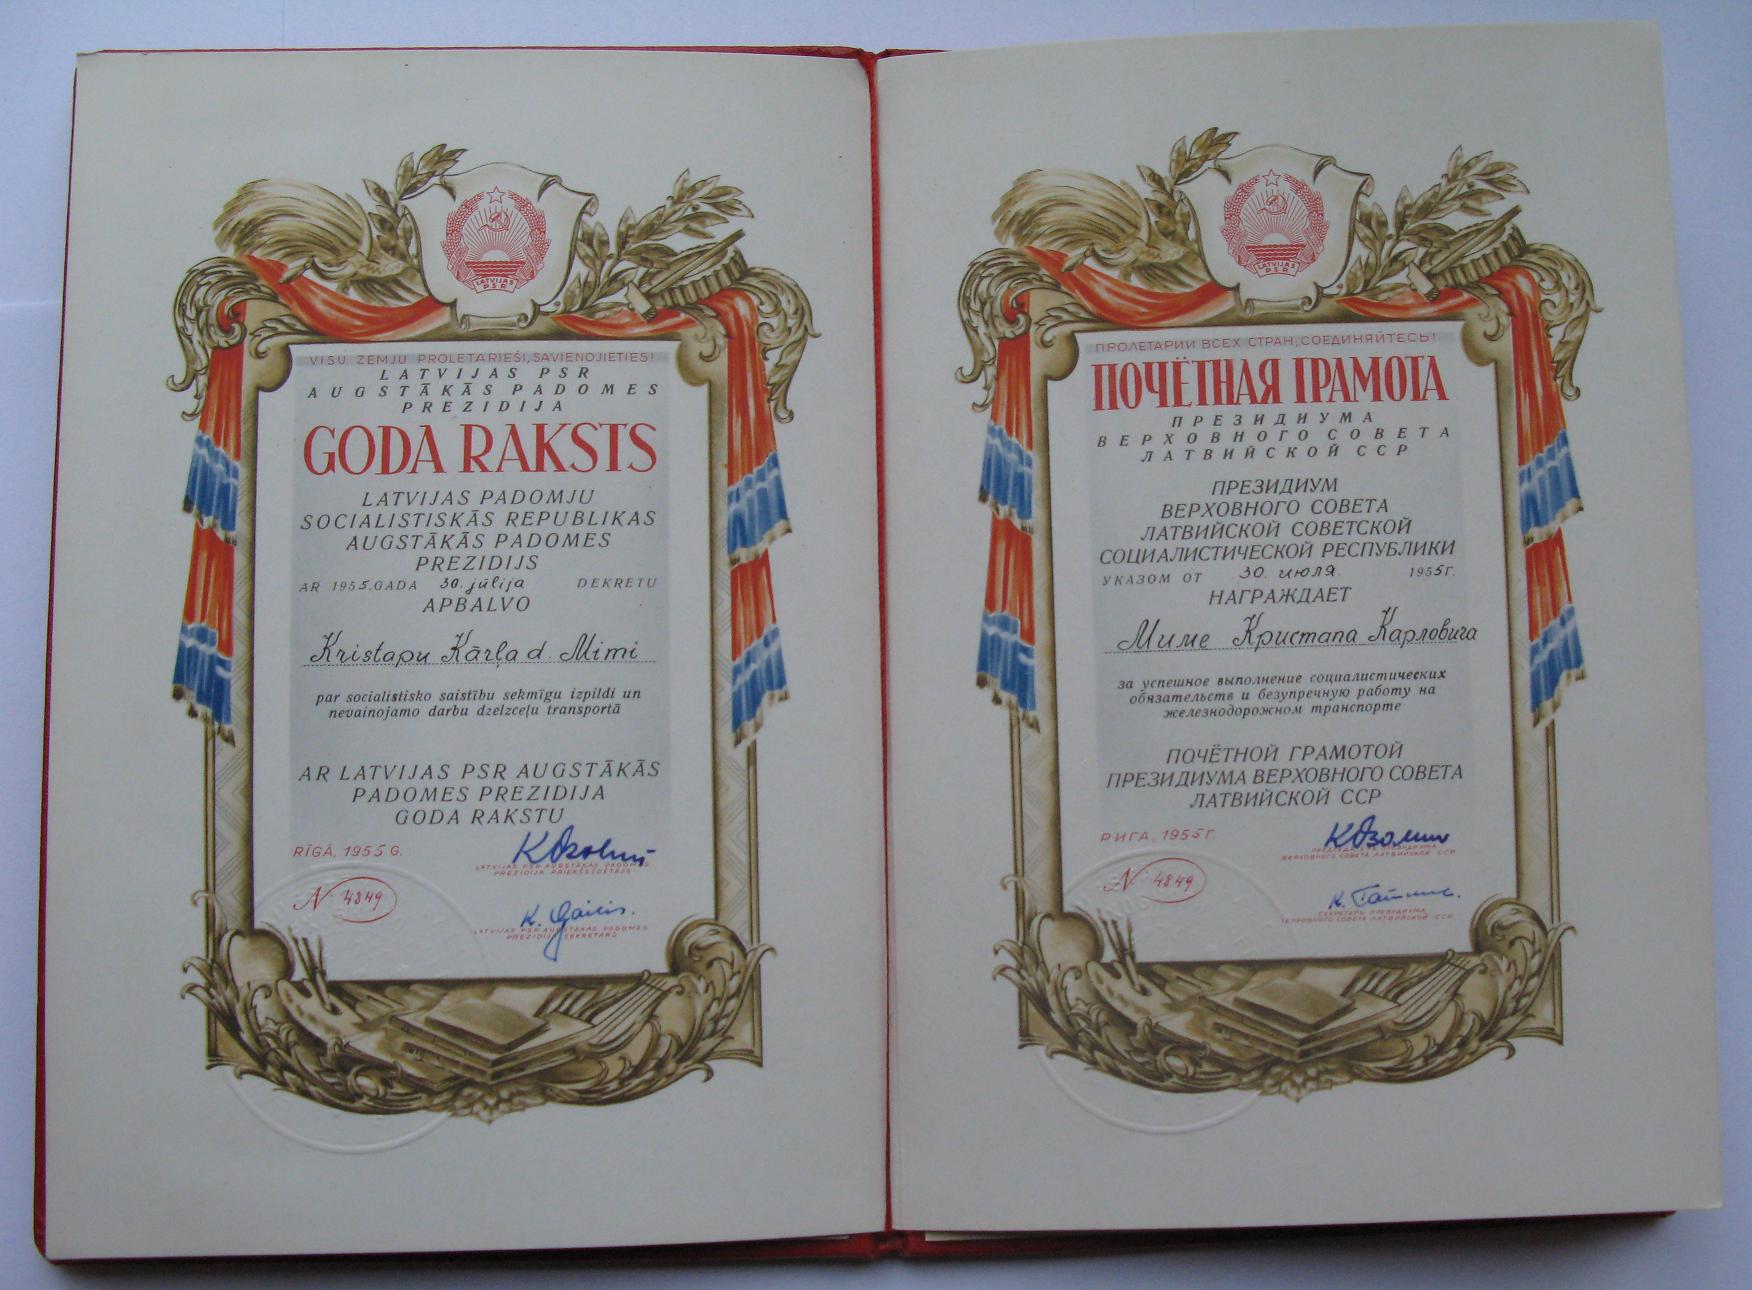 LATVIJAS
PSR
VISU ZEMJU PROLETARIEŠI, SAVIENOJIETIES!
LATVIJAS PSR
AUGSTĀKĀS PADOMES
PREZIDIJA
GODA RAKSTS
LATVIJAS PADOMJU
SOCIALISTISKĀS REPUBLIKAS
AUGSTĀKĀS PADOMES
PREZIDIJS
AR 1955. GADA 30. jūlija DEKRETU
APBALVO
Kristapu Kārļa d. Mimi
par socialistisko saistību sekmīgu izpildi un
nevainojamo darbu dzelzceļu transportā
AR LATVIJAS PSR AUGSTĀKĀS
PADOMES PREZIDIJA
GODA RAKSTU
RĪGĀ, 1955 G.
K Ozoliņš
LATVIJAS PSR AUGSTĀKĀS PADOMES
PREZIDIJA PRIEKŠSĒDĒTĀJS
N 4849
K. Gailis.
LATVIJAS PSR AUGSTĀKĀS PADOMES
PREZIDIJA SEKRETĀRS
LATVIJAS
PSR
ПРОЛЕТАРИИ ВСЕХ СТРАН, СОЕДИНЯЙТЕСЬ!
ПОЧЁТНАЯ ГРАМОТА
ПРЕЗИДИУМА
ВЕРХОВНОГО СОВЕТА
ЛАТВИЙСКОЙ ССР
ПРЕЗИДИУМ
ВЕРХОВНОГО СОВЕТА
ЛАТВИЙСКОЙ СОВЕТСКОЙ
СОЦИАЛИСТИЧЕСКОЙ РЕСПУБЛИКИ
УКАЗОМ ОТ 30. июля 1955 г.
НАГРАЖДАЕТ
Миме Кристапа Карловича
за успешное выполнение социалистических
обязательств и безупречную работу на
железнодорожном транспорте
ПОЧЁТНОЙ ГРАМОТОЙ
ПРЕЗИДИУМА ВЕРХОВНОГО СОВЕТА
ЛАТВИЙСКОЙ ССР
РИГА, 1955 Г.
К Озолин
ПРЕДСЕДАТЕЛЬ ПРЕЗИДИУМА
ВЕРХОВНОГО СОВЕТА ЛАТВИЙСКОЙ ССР
N 4849
К. Гайлис.
СЕКРЕТАРЬ ПРЕЗИДИУМА
ВЕРХОВНОГО СОВЕТА ЛАТВИЙСКОЙ ССР